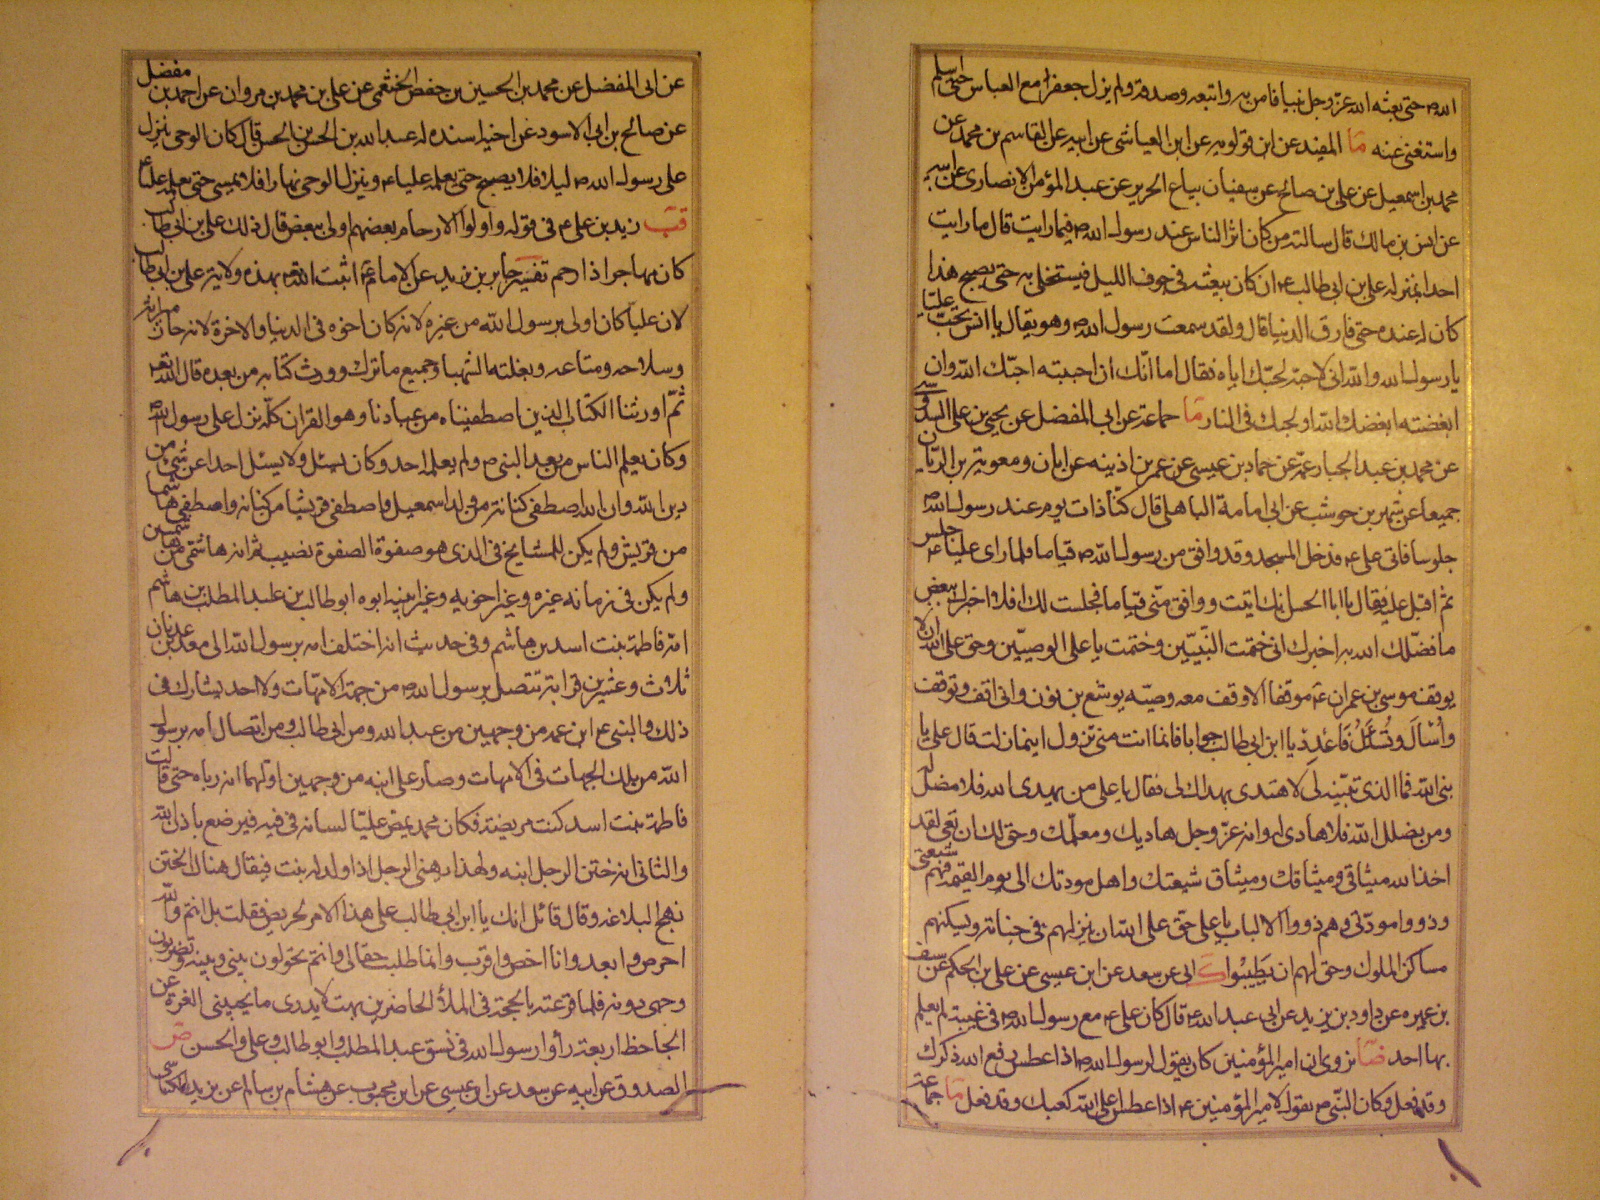 الله حتى بعثه الله عز وجل نبيا فامن به واتبعه وصدقه ولم يزل جعفر مع العباس حتى اسلم
واستغنى عنه ما المفيد عن ابن قولويه عن ابن العياشى عن ابيه عن القاسم بن محمد عن
محمد بن اسمعيل عن على بن صالح عن سفيان بياع الحرير عن عبد المؤمن الانصارى عن ابيه
عن انس بن مالك قال سالته من كان اثر الناس عند رسول الله ص فيما رايت قال ما رايت
احدا بمنزلة على بن ابى طالب ع ان كان يبعثه فى جوف الليل فيستخلى به حتى يصبح هذا
كان له عنده حتى فارق الدنيا قال ولقد سمعت رسول الله ص وهو يقال يا انس تحب عليا
يا رسول الله والله انى لاحبه لحبك اياه فقال اما انك ان احببته احبك الله وان
ابغضته ابغضك الله اولجك فى النار ما جماعة عن ابى المفضل عن يحيى بن على السدوسى
عن محمد بن عبد الجبار عن حماد بن عيسى عن عمر بن اذينه عن ابان ومعوية بن الريان
جميعا عن شهر بن حوشب عن ابى امامة الباهلى قال كنا ذات يوم عند رسول الله ص
جلوسا فاتى على ع فدخل المسجد وقد وافق من رسول الله ص قياما فلما راى عليا ع جلس
ثم اقبل عليه فقال يا ابا الحسن انك اتيت ووافق منى قياما فجلست لك افلا اخبرك ببعض
ما فضلك الله به اخبرك انى ختمت النبيين وختمت يا على الوصيين وحق على الله ان لا
يوقف موسى بن عمران ع موقفا الا وقف معه وصيه يوشع بن نون وانى اقف وتوقف
وأسال وتسئل فاعدد يا ابن ابى طالب جوابا فانما انت منى تزول اينما زلت قال على يا
نبى الله فما الذى تبينه لى لاهتدى بهداك لى فقال يا على من يهدى الله فلا مضل له
ومن يضلل الله فلا هادى له وانه عز وجل هاديك ومعلمك وحق لك ان تعى لقد
اخذ الله ميثاقى وميثاقك وميثاق شيعتك واهل مودتك الى يوم القيمة فهم شيعتى
وذووا مودتى وهم ذووا الالباب يا على حق على الله ان ينزلهم فى جناته ويسكنهم
مساكن الملوك وحق لهم ان يطيبوا ابى عن سعد عن ابن عيسى عن على بن الحكم عن سيف
بن عميره عن داود بن يزيد عن ابى عبد الله ع قال كان على ع مع رسول الله ص فى غيبة لم يعلم
بها احد نروى ان امير المؤمنين كان يقول لرسول الله ص اذا عطس رفع الله ذكرك
وقد فعل وكان النبى ص يقول لامير المؤمنين ع اذا عطس اعلى الله كعبك وقد فعل ما جماعة
عن ابى المفضل عن محمد بن الحسين بن حفص الخثعمى عن على بن محمد بن مروان عن احمد بن مفضل
عن صالح بن ابى الاسود عن اخيه اسنده له عبد الله بن الحسن بن الحسن قال كان الوحى ينزل
على رسول الله ص ليلا فلا يصبح حتى يعلمه عليا ع وينزل الوحى نهارا فلا يمسى حتى يعلمه عليا ع
قب زيد بن على ع فى قوله واولوا الارحام بعضهم اولى ببعض قال ذلك على بن ابى طالب
كان مهاجرا ذا رحم تفسير جابر بن يزيد عن الامام ع اثبت الله بهذه ولاية على بن ابى طالب
لان عليا كان اولى برسول الله من غيره لانه كان اخوه فى الدنيا والاخرة لانه حاز ميراثه
وسلاحه ومتاعه وبغلته الشهبا وجميع ما ترك وورث كتابه من بعده قال الله تع
ثم اورثنا الكتاب الذين اصطفيناه من عبادنا وهو القران كله نزل على رسول الله
وكان يعلم الناس من بعد النبى ص ولم يعلمه احد وكان يسئل ولا يسئل احدا عن شئ من
دين الله وان الله اصطفى كنانة من ولد اسمعيل واصطفى قريشا من كنانه واصطفى هاشما
من قريش ولم يكن للمشايخ فى الذى هو صفوة الصفوة نصيب ثم انه هاشمى من هاشميين
ولم يكن فى زمانه غيره وغير اخويه وغير ابنيه ابوه ابو طالب بن عبد المطلب بن هاشم
امه فاطمة بنت اسد بن هاشم وفى حديث انه اختلف امه برسول الله الى معد بن عدنان
ثلاث وعشرين قرابة تتصل برسول الله ص من جهة الامهات ولا احد يشارك فى
ذلك والنبى ع ابن عمه من وجهين من عبد الله ومن ابى طالب ومن اتصال امه برسول
الله من تلك الجهات فى الامهات وصار على ابنه من وجهين اولهما انه رباه حتى قالت
فاطمة بنت اسد كنت مريضة فكان محمد يمص عليا لسانه فى فيه فيرضع باذن الله
والثانى انه ختن الرجل ابنه ولهذا يهنى الرجل اذا ولد له بنت فيقال هناك الختن
نهج البلاغه وقال قائل انك يا ابن ابى طالب على هذا الامر لحريص فقلت بل انتم والله
احرص وابعد وانا اخص واقرب وانما طلبت حقا لى وانتم تحولون بينى وبينه وتضربون
وجهى دونه فلما قرعته بالحجة فى الملأ الحاضرين بهت لا يدرى ما يجيبنى الغرة عن
الجاحظ اربعة رأوا رسول الله فى نسق عبد المطلب وابو طالب وعلى والحسن
الصدوق عن ابيه عن سعد عن ابن عيسى عن ابن محبوب عن هشام بن سالم عن بريد الكناسى